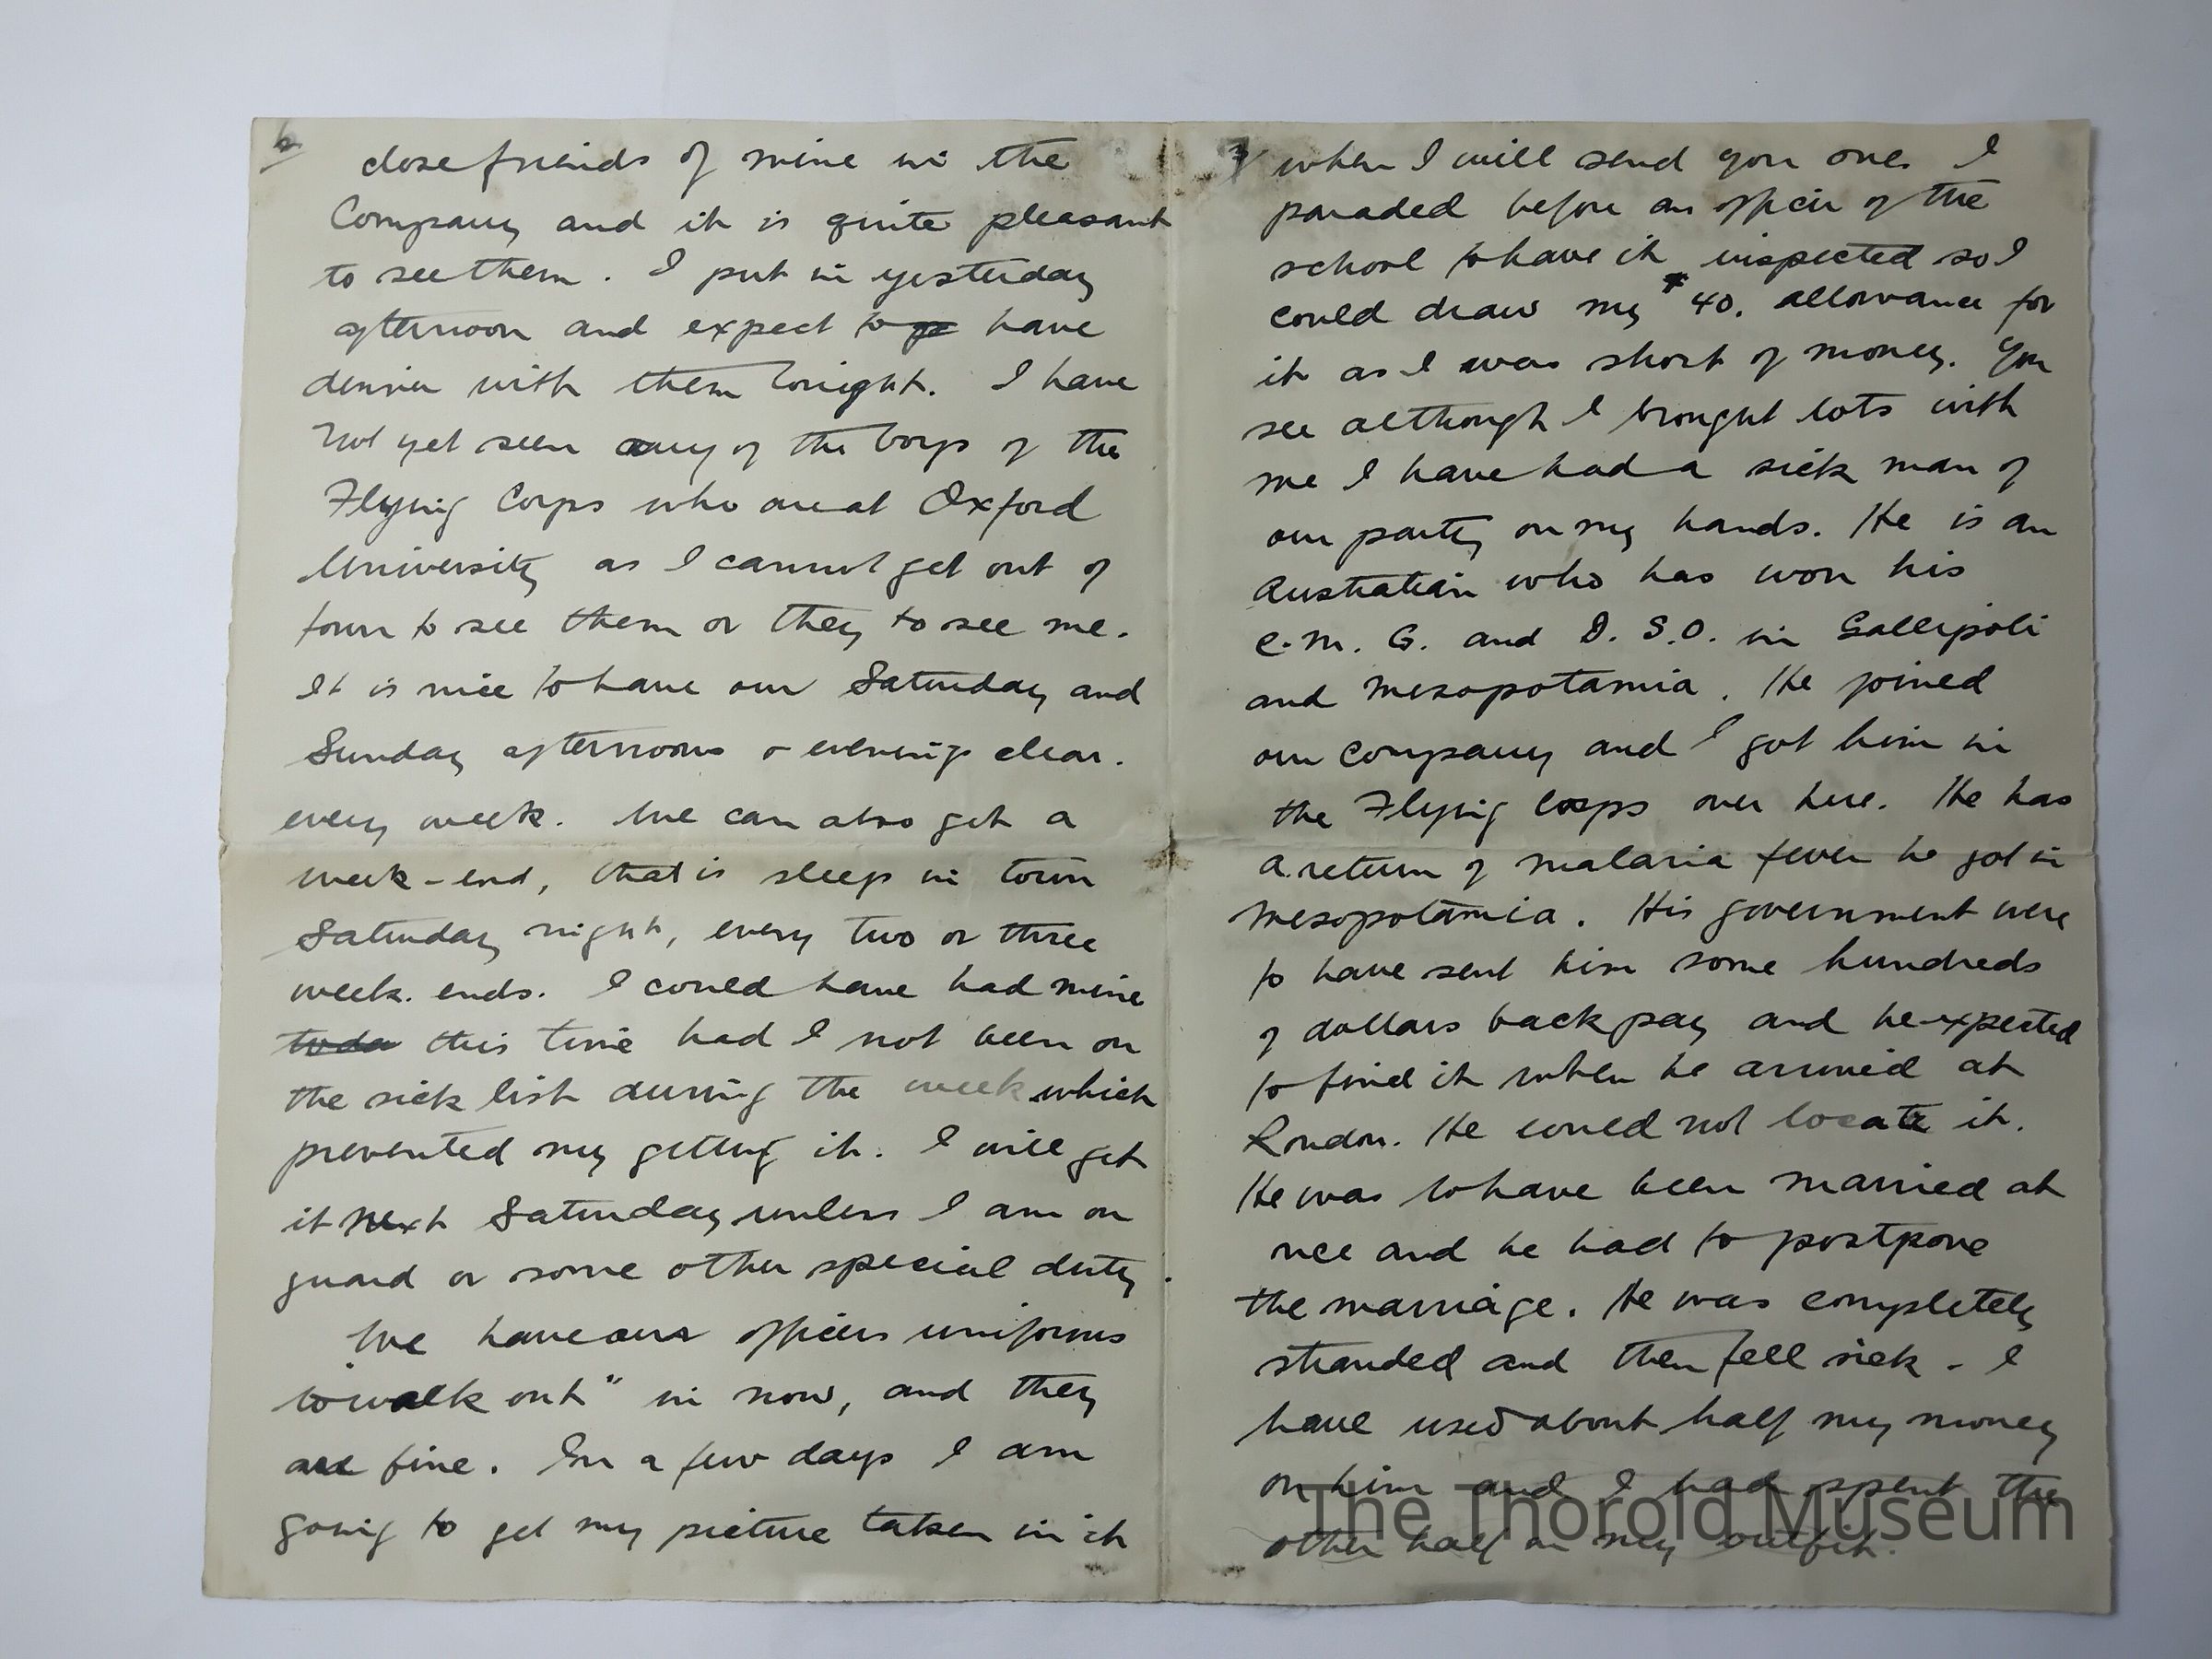 6
close friends of mine in the
Company and it is quite pleasant
to see them. I put in yesterday
afternoon and expect to go have
dinner with them tonight. I have
not yet seen any of the boys of the
Flying Corps who are at Oxford
University as I cannot get out of
town to see them or they to see me.
It is nice to have our Saturday and
Sunday afternoons & evenings clear.
every week. We can also get a
week-end, that is sleep in town
Saturday night, every two or three
week. ends. I could have had mine
toda this time had I not been on
the sick list during the week which
prevented my getting it. I will get
it next Saturday unless I am on
guard or some other special duty.
We have our officers uniforms
to walk out" in now, and they
are fine. In a few days I am
going to get my picture taken in it
7/ when I will send you one. I
paraded before an officer of the
school to have it inspected so I
could draw my $40. allowance for
it as I was short of money. You
see although I brought lots with
me I have had a sick man of
our party on my hands. He is an
Australian who has won his
C.M.G. and D.S.O. in Gallipoli
and Mesopotamia. He joined
our Company and I got him in
the Flying Corps over here. He has
a return of malaria fever he got in
Mesopotamia. His government were
to have sent him some hundreds
of dollars back pay and he expected
to find it when he arrived at
London. He could not locate it.
He was to have been married at
nce and he had to postpone
the marriage. He was completely
stranded and then fell sick - I
have used about half my money
on him and I had spent the
other half on my outfit.
The Thorold Museum